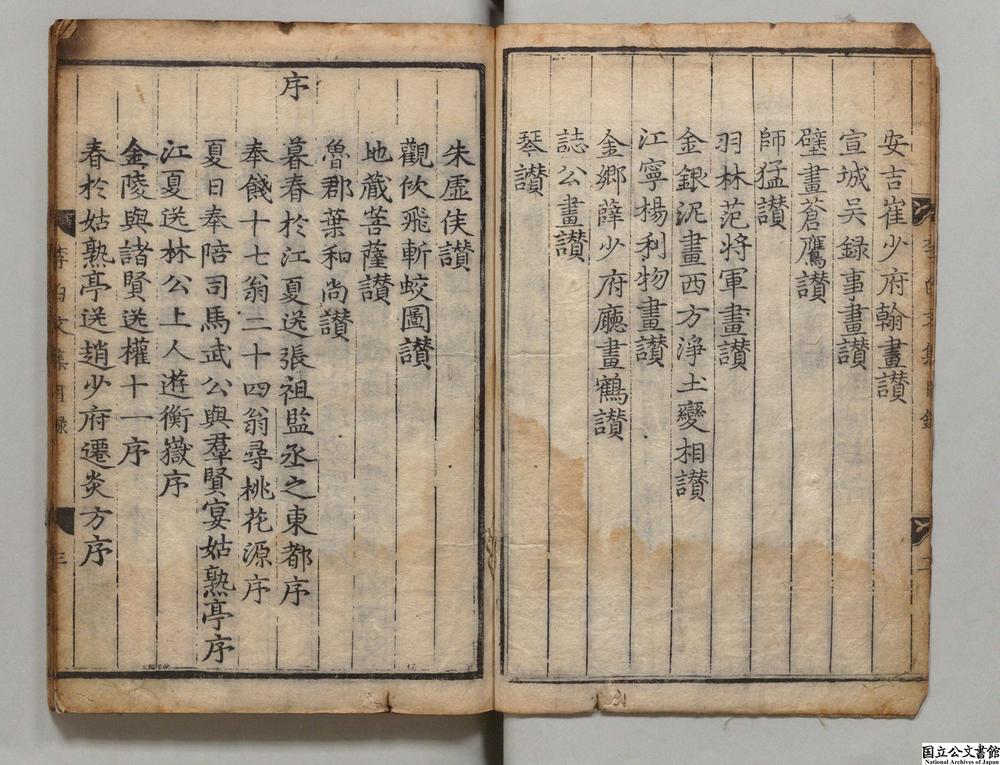 安吉崔少府翰畫讃
宣城吴録事畫讃
壁畫蒼鷹讃
師猛讃
羽林范将軍畫讃
金銀泥畫西方淨土變相讃
江寧楊利物畫讃
金鄉薛少府廳畫鶴讃
誌公畫讃
琴讃
朱虛侯讃
觀佽飛斬蛟圖讃
地蔵菩薩讃
魯郡葉和尚讃
序
暮春於江夏送張祖監丞之東都序
奉餞十七翁二十四翁尋桃花源序
夏日奉陪司馬武公與羣賢宴姑熟亭序
江夏送林公上人遊衡嶽序
金陵與諸賢送權十一序
春於姑熟亭送趙少府遷炎方序
李白文集目録
三
国立公文書館
National Archives of Japan